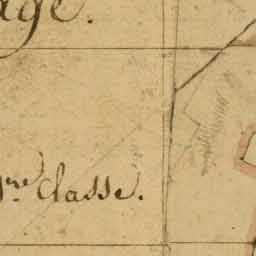 age.
1re Classe.